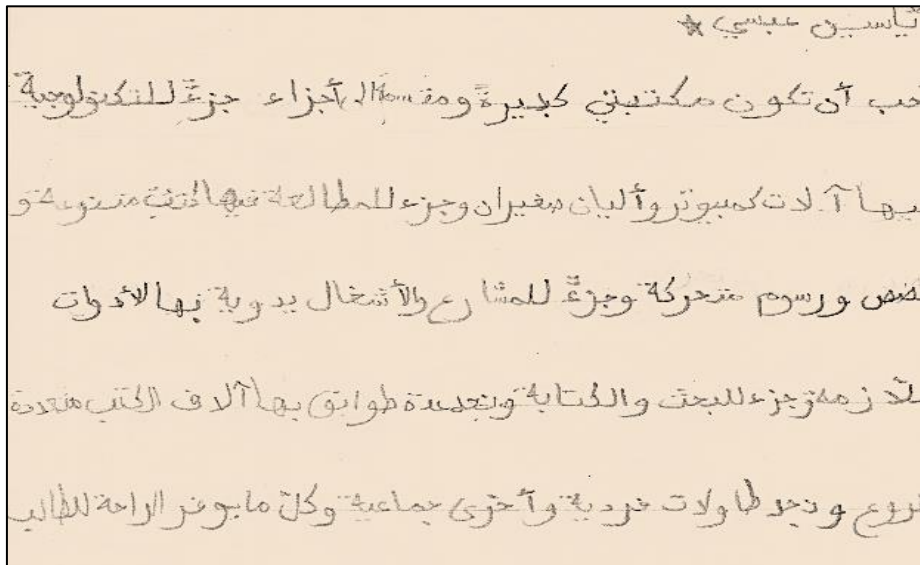 ياسين عبسي
حب أن تكون مكتبتي كبيرةً ومقسمة الى أجزاء جزءٌ للتكنولوجية
يها آلات كمبيوتر وأليان صغيران وجزء للمطالعة فيها كتب متنوعة و
صص ورسوم متحركة وجزءٌ للمشارع والأشغال يدوية بها الأدوات
لّازمة وجزء للبحث والكتابة طوابق بها آلاف الكتب متعددة
روع و نجد طاولات فردية وأخرى جماعية وكلّ ما يوفر الراحة للطالب